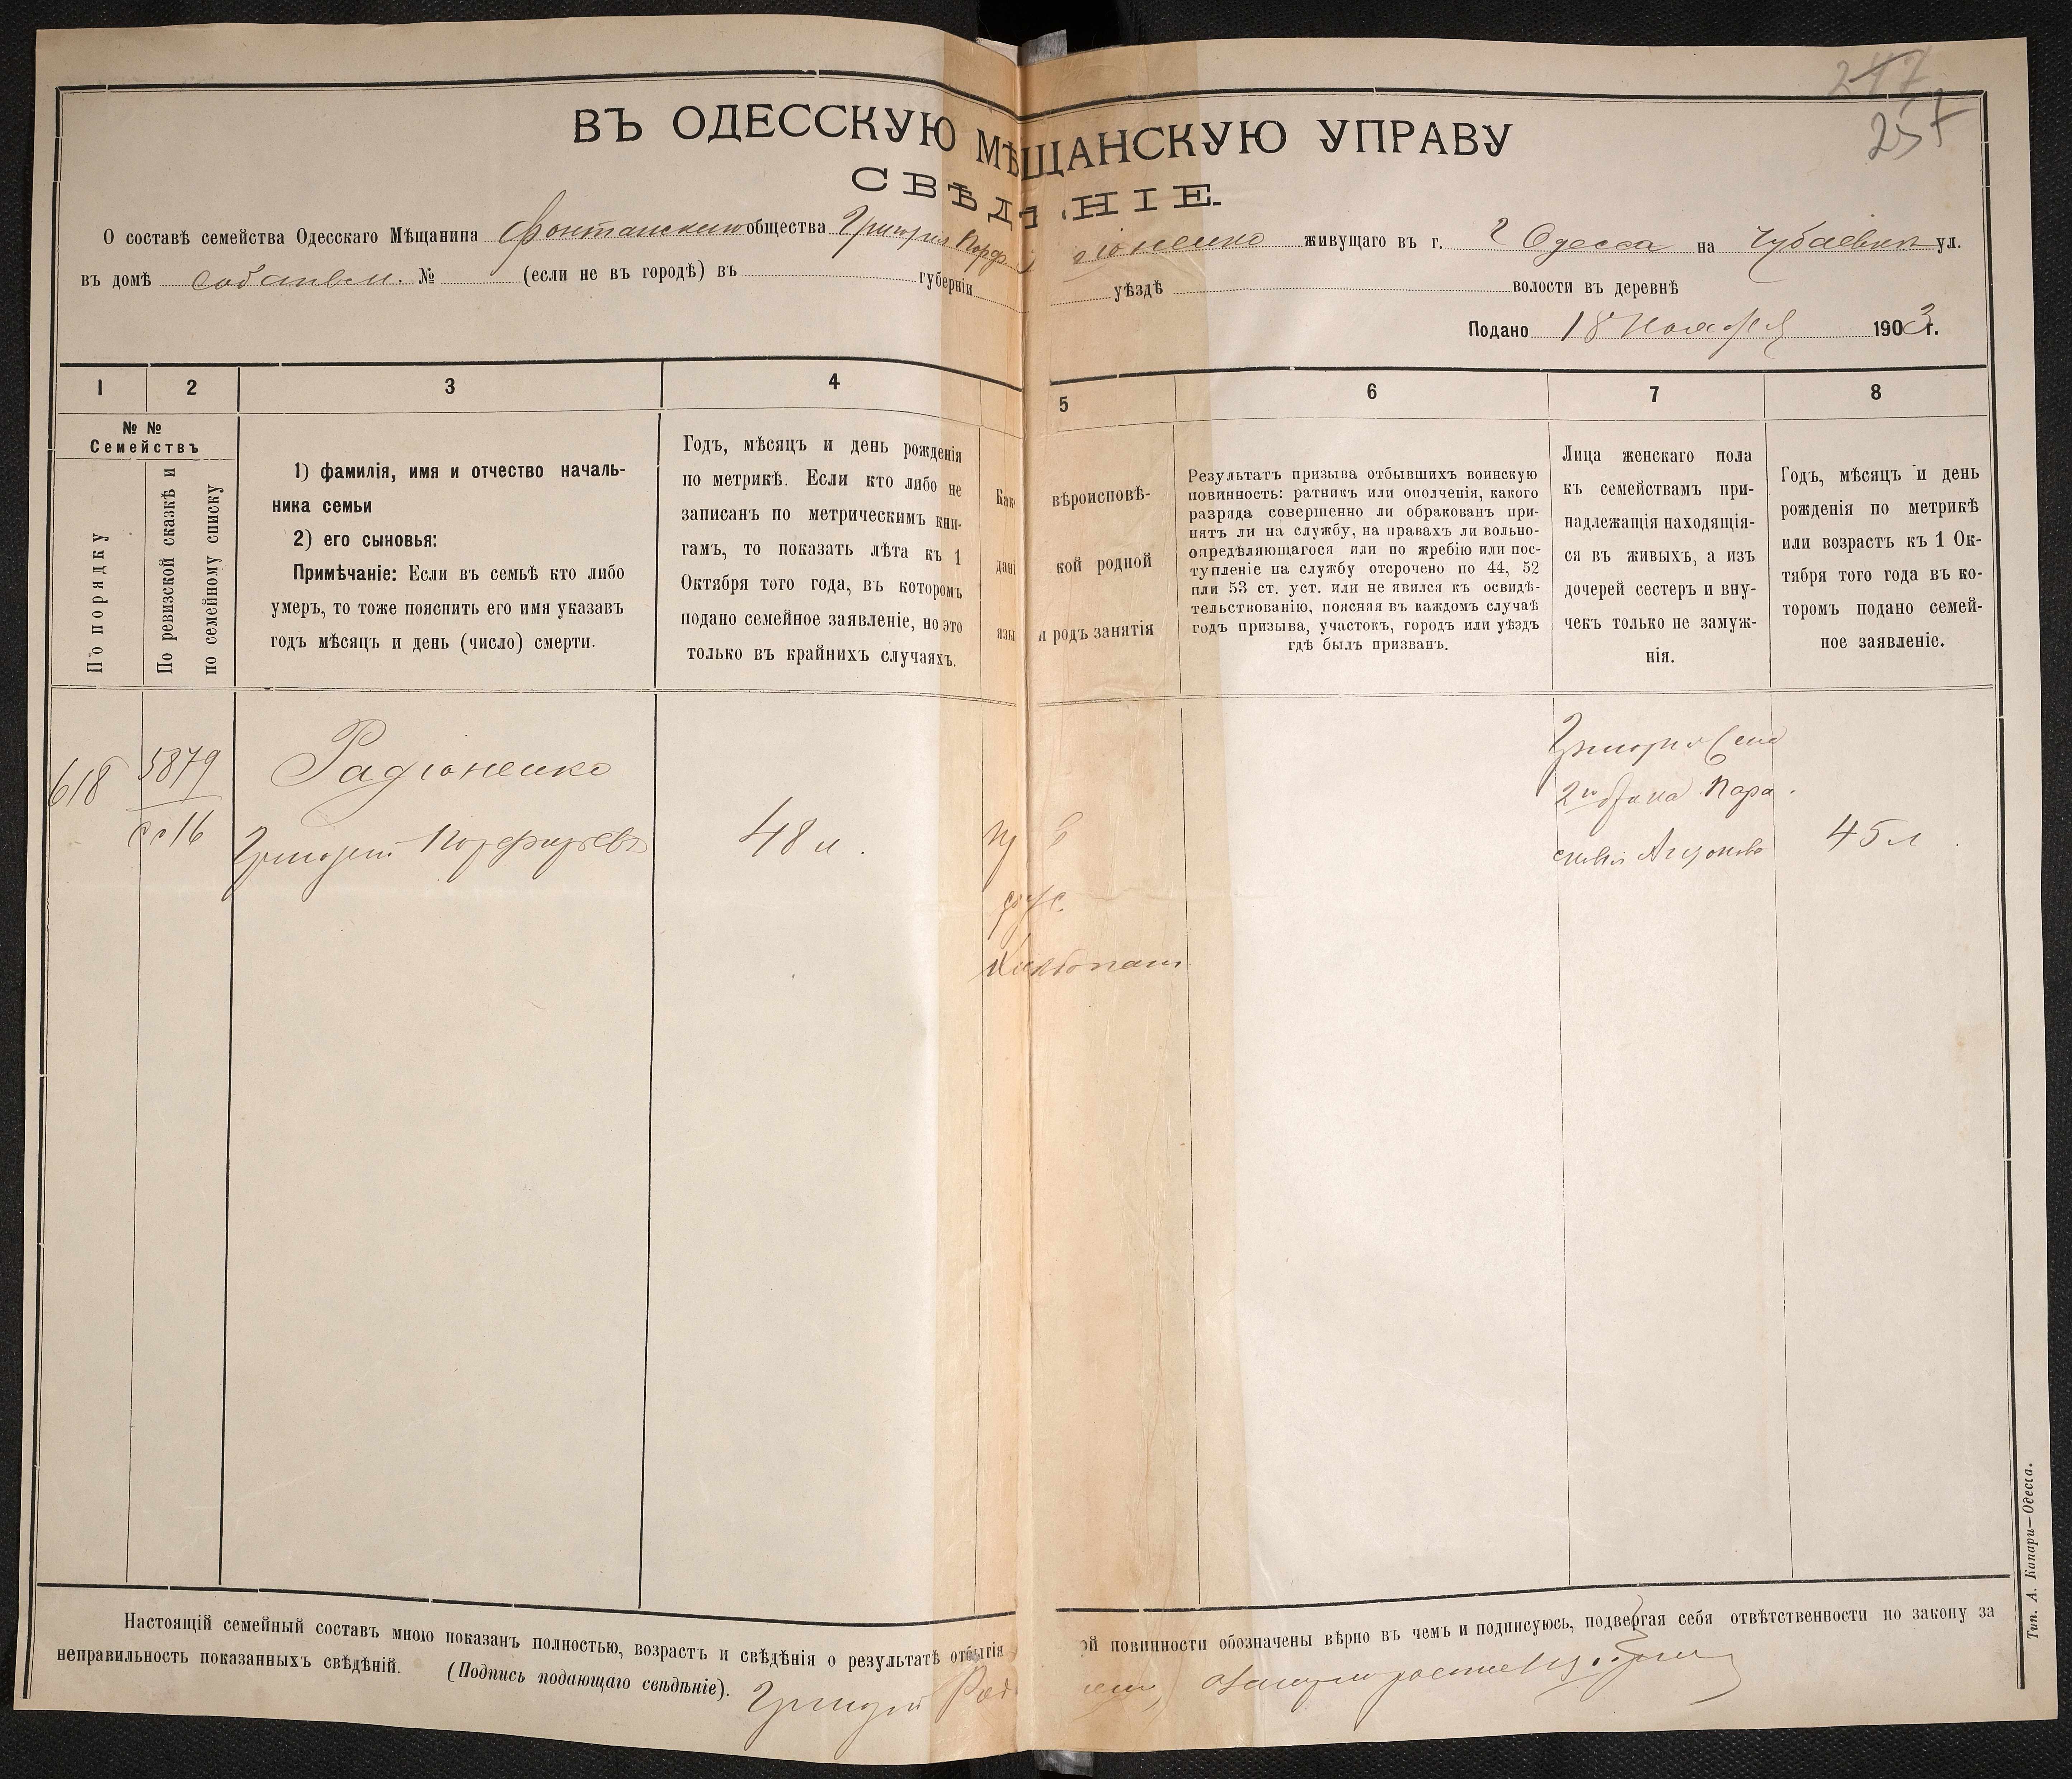 247
257
ВЪ ОДЕССКУЮ МѢЩАНСКУЮ УПРАВУ
СВѢД НІЕ.
О составѣ семейства Одесскаго Мѣщанина Фонтанскаго общества Григорія Порф іоненко живущаго въ г. г Одесса на Чубаевки ул.
въ домѣ собствен. № (если не въ городѣ) въ губерніи уѣздѣ волости въ деревнѣ
Подано 18 Ноября 1903 г.
1 2 3 4 5 6 7 8
№ №
Семействъ
По порядку
По ревизской сказкѣ и
по семейному списку
1) фамилія, имя и отчество началь-
ника семьи
2) его сыновья:
Примѣчаніе: Если въ семьѣ кто либо
умеръ, то тоже пояснить его имя указавъ
годъ мѣсяцъ и день (число) смерти.
Годъ, мѣсяцъ и день рожденія
по метрикѣ. Если кто либо не
записанъ по метрическимъ кни-
гамъ, то показать лѣта къ 1
Октября того года, въ которомъ
подано семейное заявленіе, но это
только въ крайнихъ случаяхъ.
Как вѣроисповѣ-
дані кой родной
язы и родъ занятія
Результатъ призыва отбывшихъ воинскую
повинность: ратникъ или ополченія, какого
разряда совершенно ли обракованъ при-
нятъ ли на службу, на правахъ ли вольно-
опредѣляющагося или по жребію или пос-
тупленіе на службу отсрочено по 44, 52
или 53 ст. уст. или не явился къ освидѣ-
тельствованію, поясняя въ каждомъ случаѣ
годъ призыва, участокъ, городъ или уѣздъ
гдѣ былъ призванъ.
Лица женскаго пола
къ семействамъ при-
надлежащія находящія-
ся въ живыхъ, а изъ
дочерей сестеръ и вну-
чекъ только не замуж-
нія.
Годъ, мѣсяцъ и день
рожденія по метрикѣ
или возрастъ къ 1 Ок-
тября того года въ ко-
торомъ подано семей-
ное заявленіе.
618
5879
16
Радіоненко
Григорій Порфирьевъ
48 л.
рус.
Хлѣбопаш
Григорія жена
2го брака Пара-
скева
45 л.
Настоящій семейный составъ мною показанъ полностью, возрастъ и свѣдѣнія о результатѣ отбытія ой повинности обозначены вѣрно въ чемъ и подписуюсь, подвергая себя отвѣтственности по закону за
неправильность показанныхъ свѣдѣній. (Подпись подающаго свѣдѣніе).
Григорій Рад
Тип. А. Кипари—Одесса.